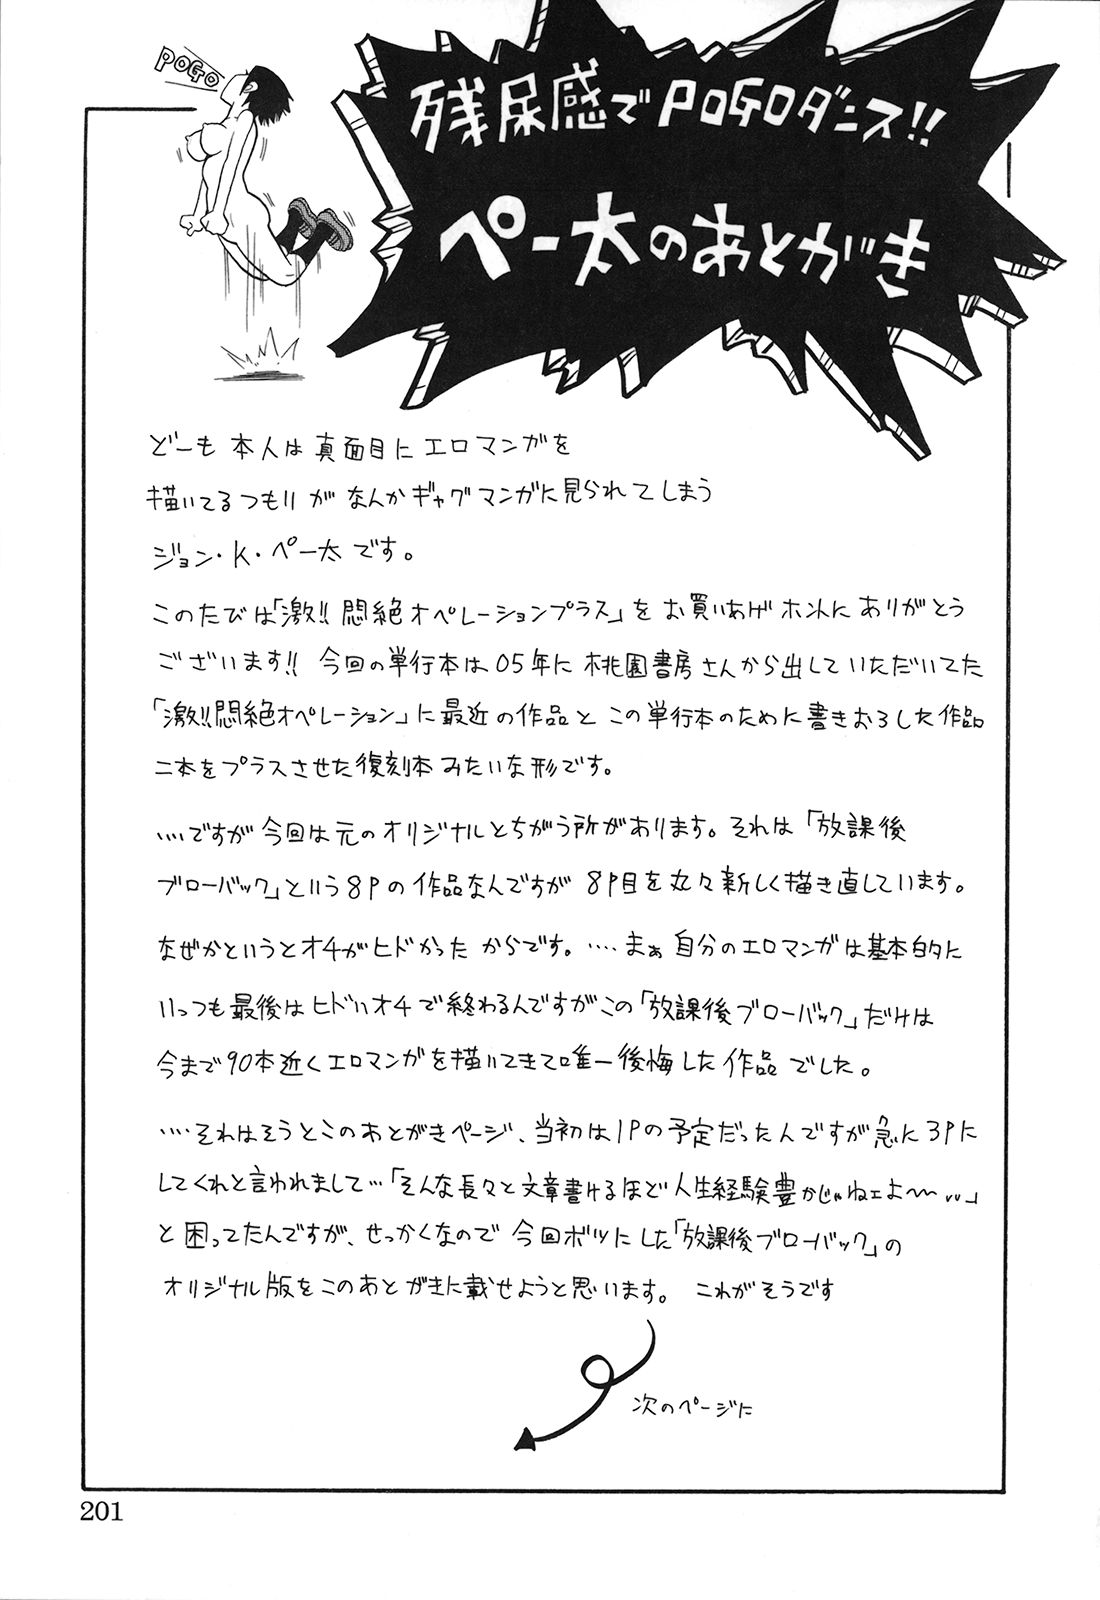 POGO
残尿感でPOGOダンス!!
ペー太のあとがき
どーも 本人は真面目にエロマンガを
描いてるつもりが なんかギャグマンガに見られてしまう
ジョン・K・ペー太です。
このたびは「激!!悶絶オペレーションプラス」をお買いあげホントにありがとう
ございます!! 今回の単行本は05年に桃園書房さんから出していただいてた
「激!!悶絶オペレーション」に最近の作品とこの単行本のために書きおろした作品
二本をプラスさせた復刻本みたいな形です。
....ですが今回は元のオリジナルとちがう所があります。それは「放課後
ブローバック」という8Pの作品なんですが 8P目を丸々新しく描き直しています。
なぜかというとオチがヒドかったからです。....まぁ自分のエロマンガは基本的に
いっつも最後はヒドいオチで終わるんですがこの「放課後ブローバック」だけは
今まで90本近くエロマンガを描いてきて唯一後悔した作品でした。
....それはそうとこのあとがきページ、当初は1Pの予定だったんですが急に3Pに
してくれと言われまして...「そんな長々と文章書けるほど人生経験豊かじゃねェよ〜...」
と困ってたんですが、せっかくなので今回ボツにした「放課後ブローバック」の
オリジナル版をこのあとがきに載せようと思います。 これがそうです
次のページに
201